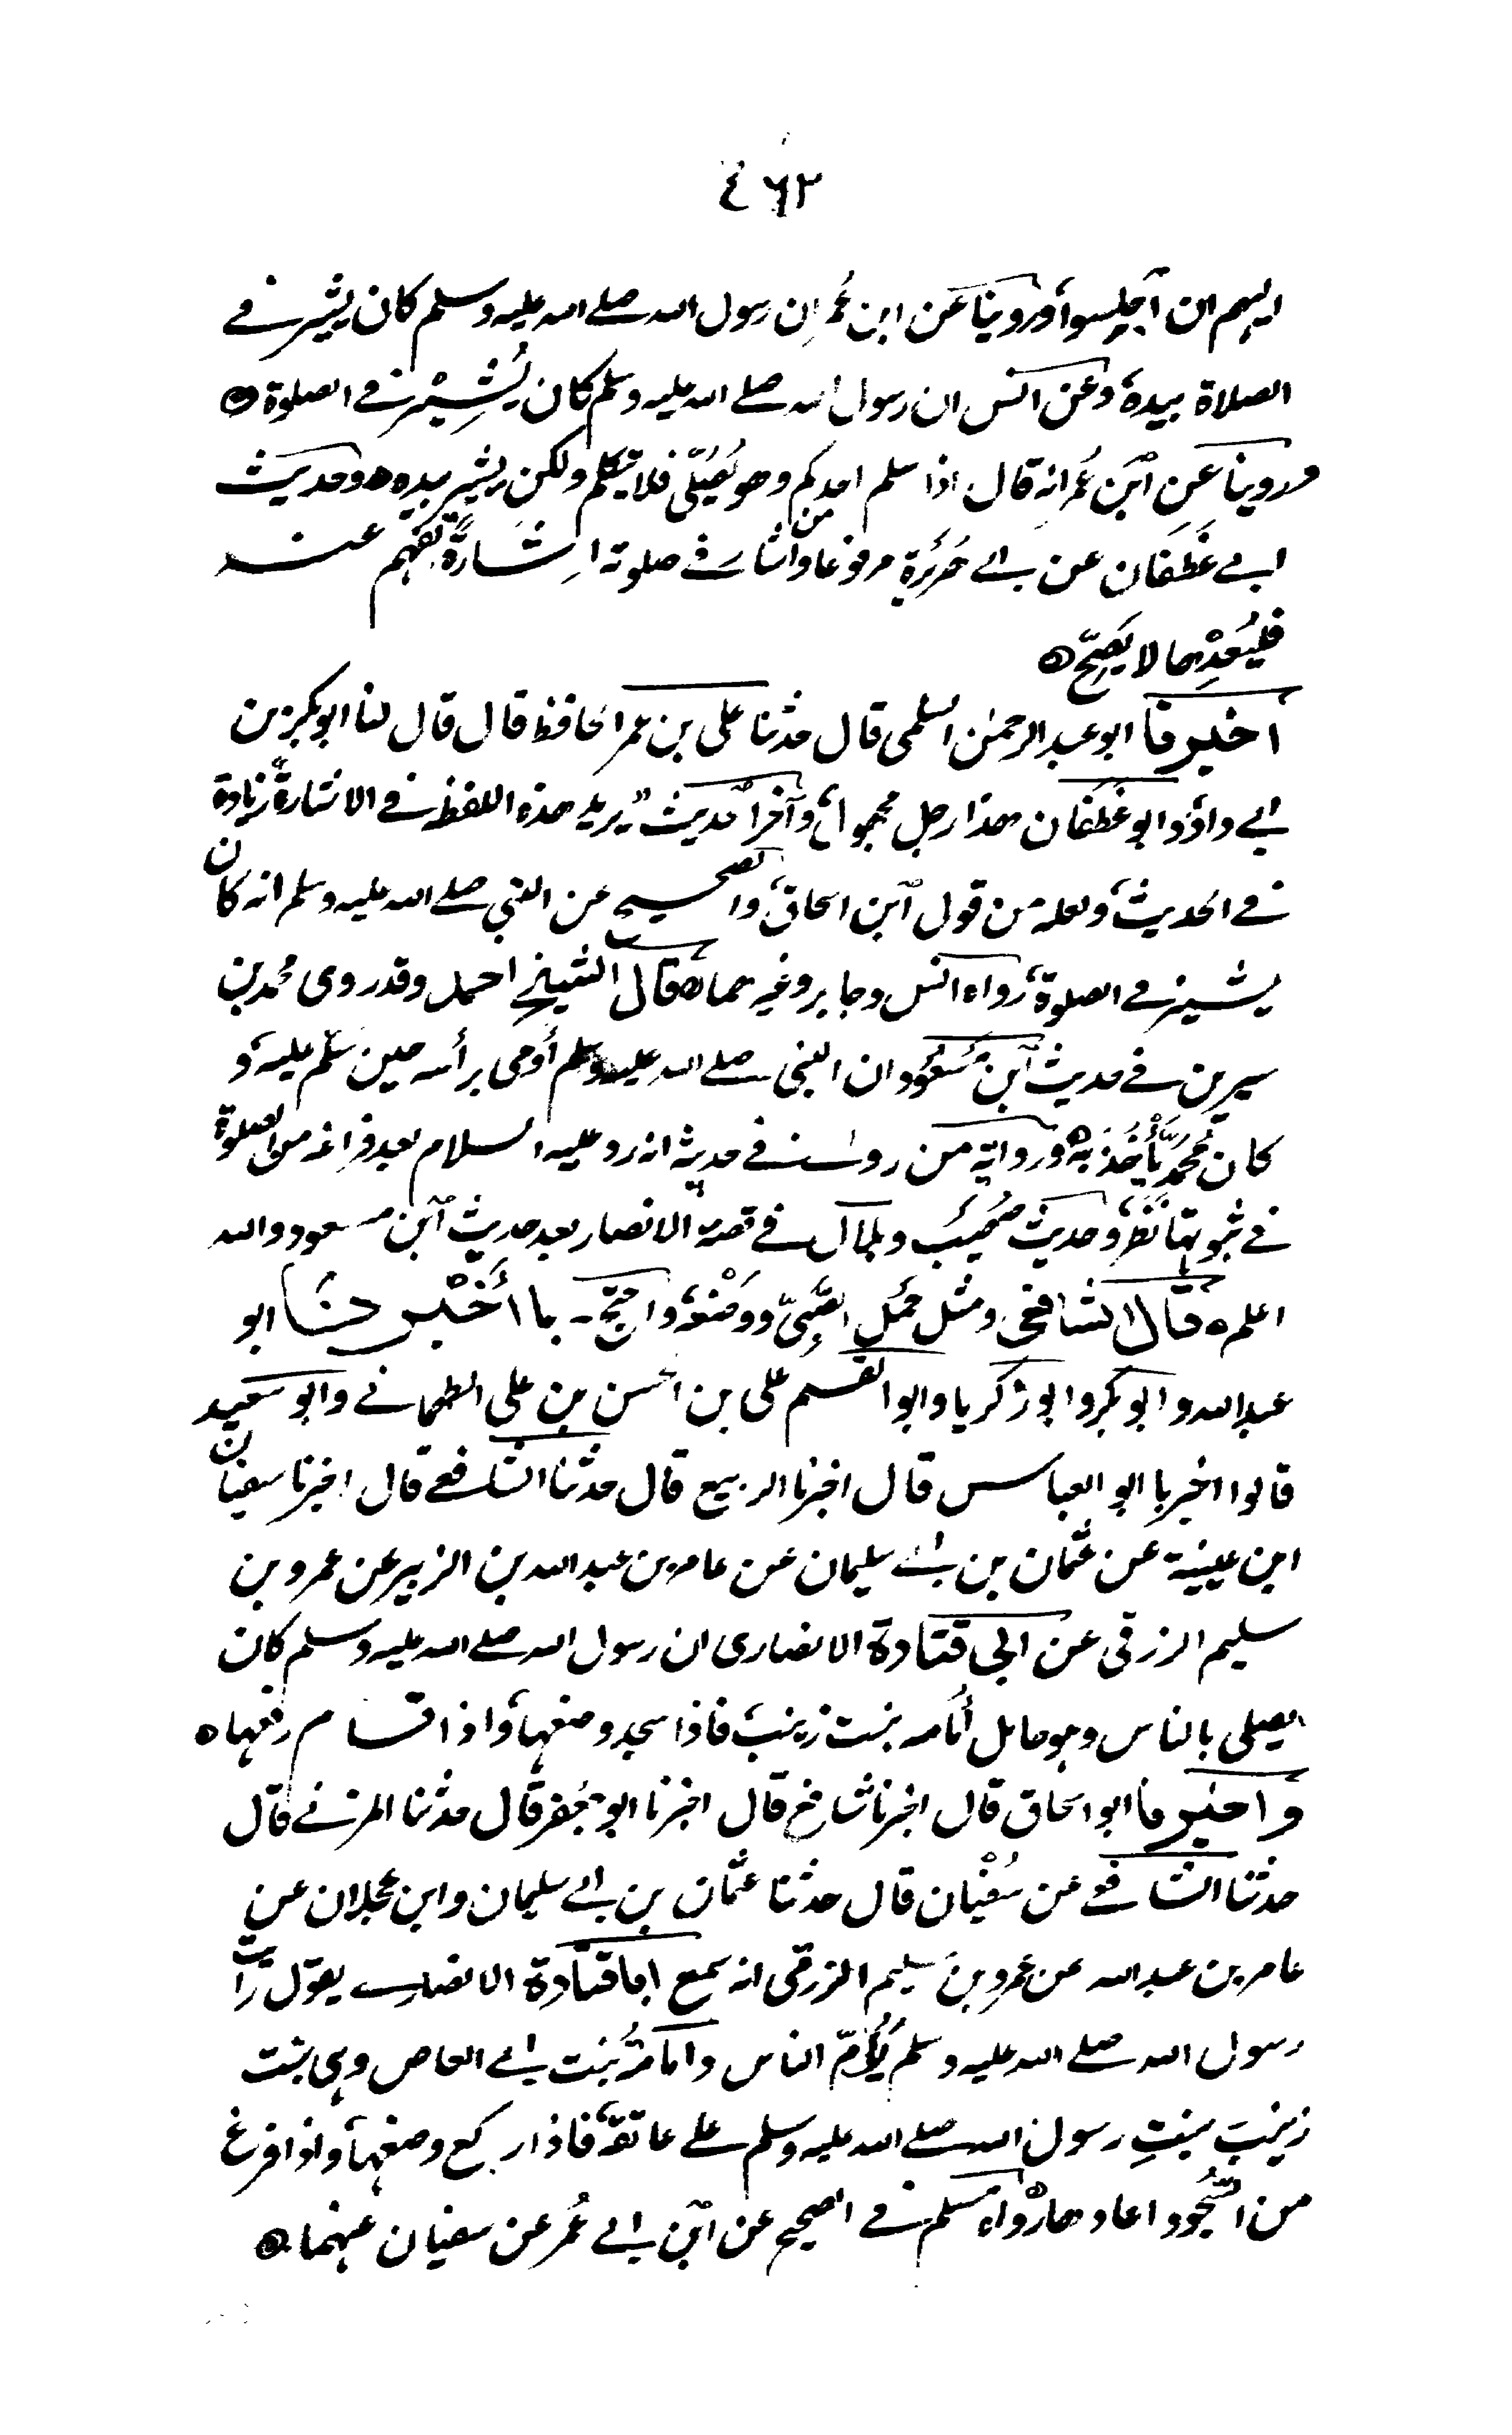 ٤٦٣
اليهم ان اجلسوا، وروينا عن ابن عُمر ان رسول الله صلے الله عليه وسلم كان يشير فے
الصلاة بيده، وعن انس ان رسول الله صلے الله عليه وسلم كان يُشِيْر فے الصلوة ه
وروينا عن ابن عُمر انه قال اذا سلم احدكم وهو يُصَلّى فلا يتكلم ولكن يشير بيده ه وحديث
ابے غَطَفَان عن ابے هُرَيْرَة مرفوعا من واشار فے صلوته اِشَارَةً تفهم عنه
فليُعِدْها لا يَصِحّ ه
اخبرنا ابو عبد الرحمٰن السلمى قال حدثنا على بن عمر الحافظ قال قال لنا ابو بكر بن
ابے داؤد ابو غَطَفَان هذا رجل مجهول، وآخر الحديث" يريد هذه اللفظ فے الاشارة زيادة
فے الحديث، ولعله من قول ابن اسحاق، والصحيح عن النبى صلے الله عليه وسلم انه كان
يشير فے الصلوة، رواه انس وجابر وغيرهما ه قال الشيخ احمد وقد روى محمد بن
سيرين فے حديث ابن مَسْعُود ان النبى صلے الله عليه وسلم أومى برأسه حين سَلّم عليه، و
كان مُحَمَّد يَأْخُذ به ه ورواية من روىٰ فے حديثه انه رد عليه السلام بعد فراغه من الصلوة
فے ثبوتها نظر، وحديث صُهَيْب وبلال فے قصة الانصار بعد حديث ابن مسعود والله
اعلم ه قال الشافعى ومثل حَمْل الصَّبِىّ ووَضْعه، واحتج - بما أَخْبَرنَا ابو
عبد الله وابو بكر وابو زكريا وابو القسم على بن الحسن بن على الطهمانے وابو سعيد
قالوا اخبرنا ابو العباس قال اخبرنا الربيع قال حدثنا الشافعے قال اخبرنا سفيان
ابن عيينة عن عثمان بن ابے سليمان عن عامر بن عبد الله بن الزبير عن عمرو بن
سليم الزرقى عن ابى قتادة الانصارى ان رسول الله صلے الله عليه وسلم كان
يصلى بالناس وهو حامل أمامه بنت زينب، فاذا سجد وضعها، واذا قام رفعها ه
واخبرنا ابو اسحاق قال اخبرنا شافع قال اخبرنا ابو جعفر قال حدثنا المزنے قال
حدثنا الشافعے عن سُفْيَان قال حدثنا عثمان بن ابے سليمان وابن عجلان عن
عامر بن عبد الله عن عمرو بن سليم الزرقى انه سمع ابا قتادة الانصارے يقول رأيت
رسول الله صلے الله عليه وسلم يَؤُمّ الناس وامامة بنت ابے العاص وهى بنت
زينبَ بنتِ رسول الله صلے الله عليه وسلم علے عاتقه، فاذا ركع وضعها، واذا فرغ
من السُّجُود اعادها، رواه مسلم فے الصحيح عن ابن ابے عُمر عن سفيان عنهما ه